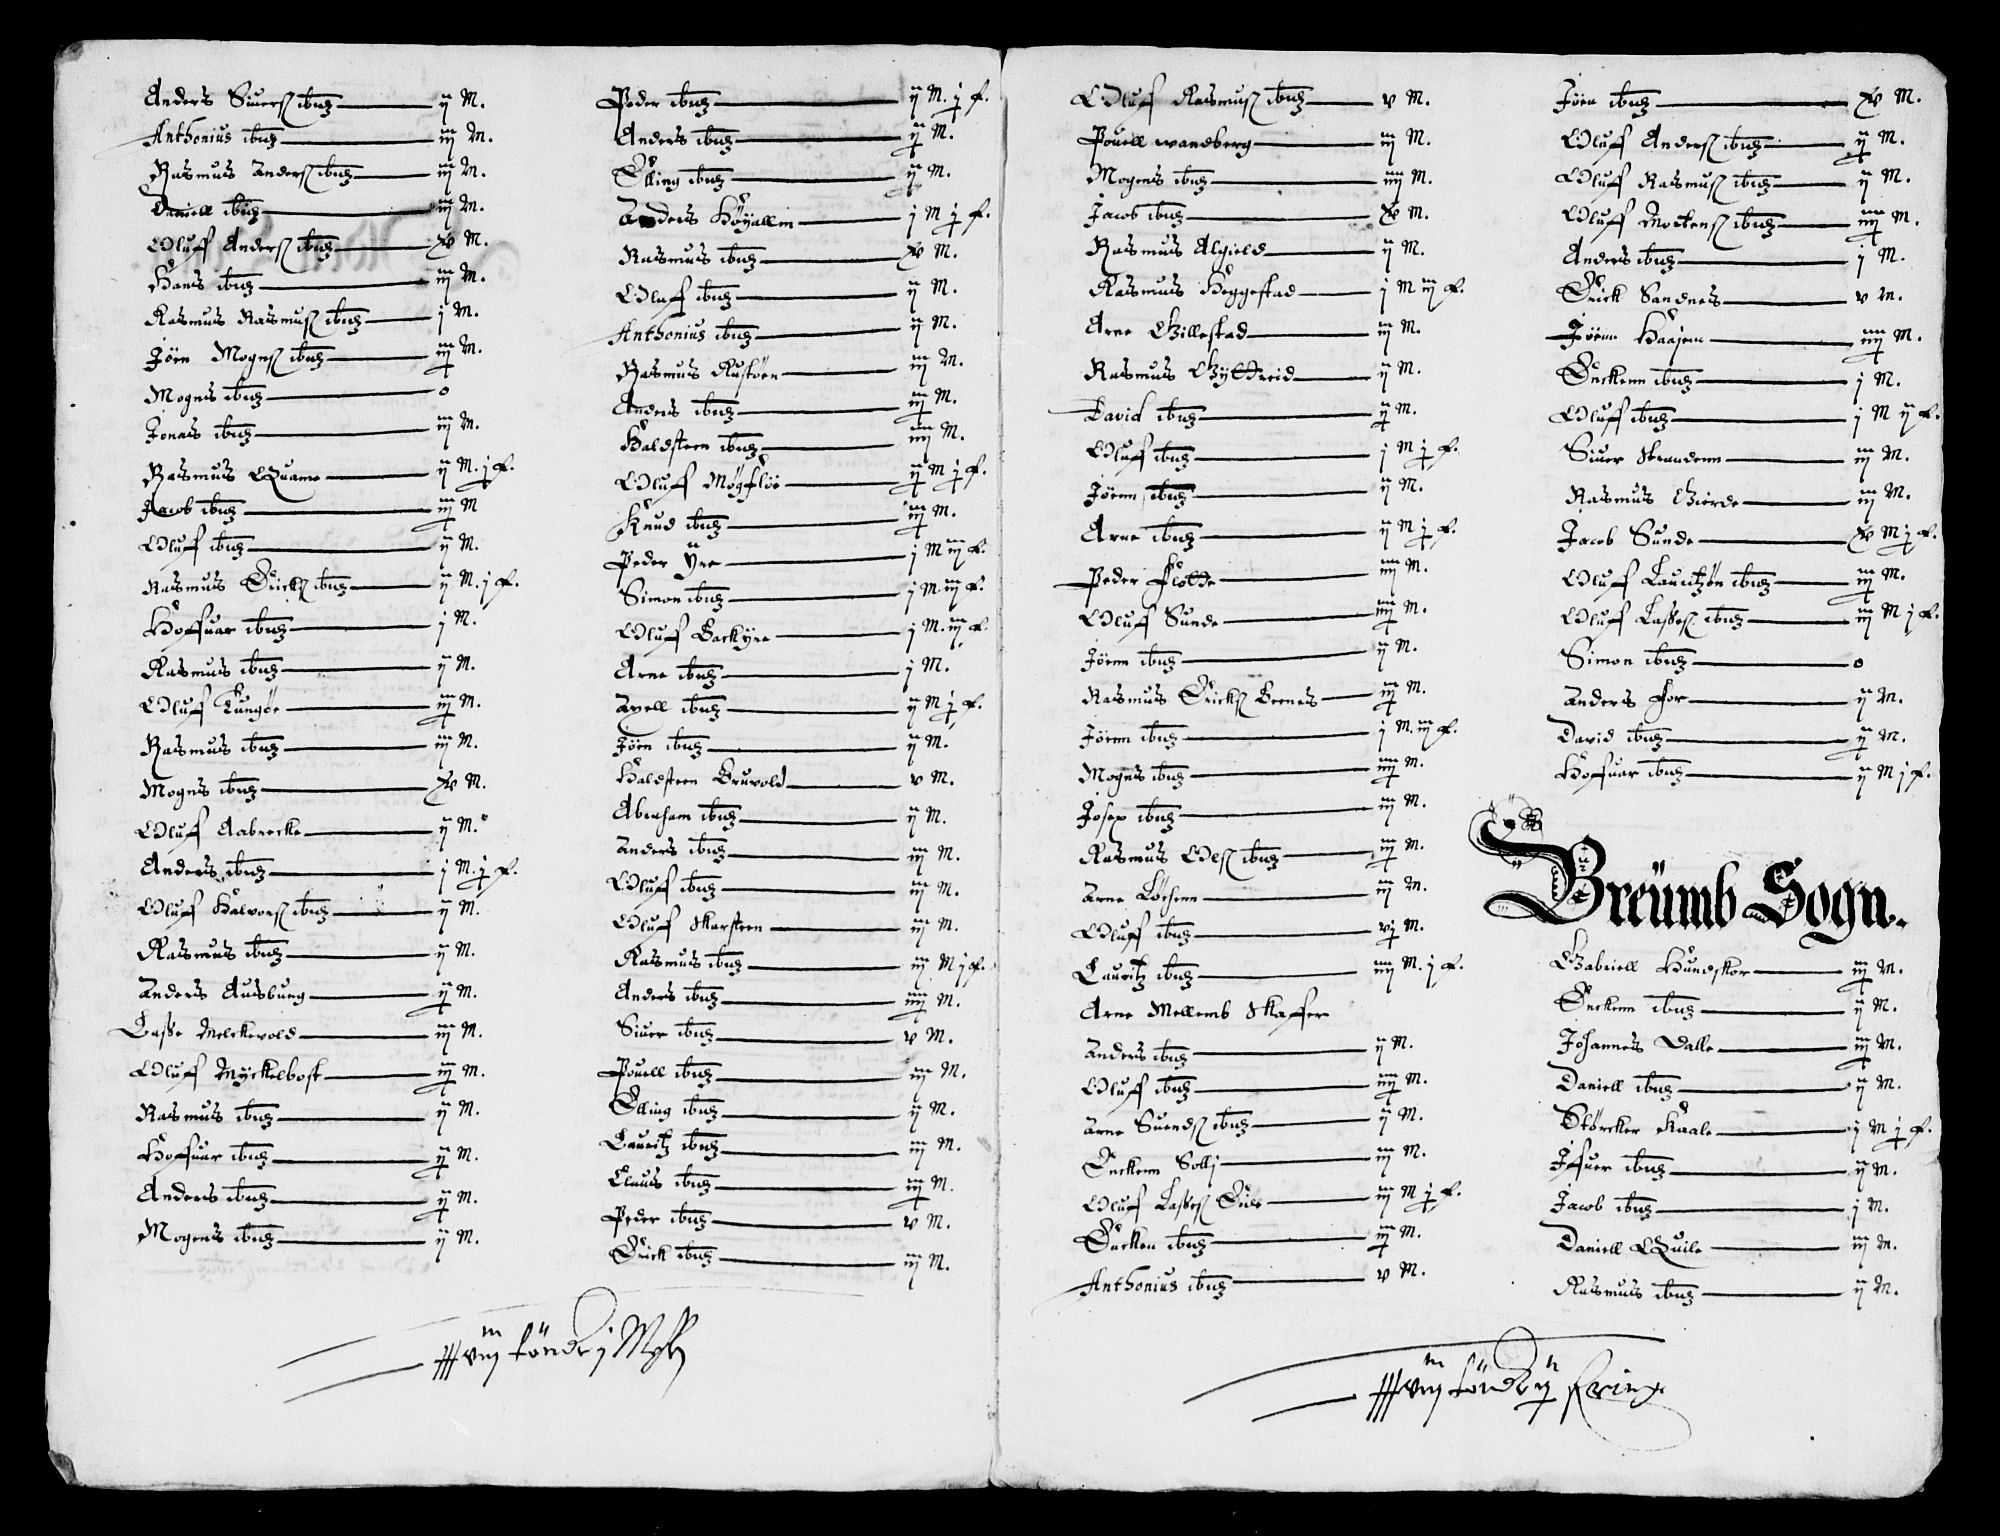 Anders Siuersß ibidz — ij M.
Anthonius ibidz — iij M.
Rasmus Andersß ibidz — iij M.
Daniell ibidz — iij M.
Oluff Andersß ibidz — xv M.
Hans ibidz — iij M.
Rasmus Rasmusß ibidz — j M.
Jörn Mognsß ibidz — iij M.
Mogns ibidz — 0
Jonas ibidz — iij M.
Rasmus Quame — ij M. j F.
Jacob ibidz — iij M
Oluff ibidz — ij M.
Rasmus Öricksß ibidz — ij M. j F.
Hoffuar ibidz — j M.
Rasmus ibidz — ij M.
Oluff Lungöe — iij M.
Rasmus ibidz — iij M.
Mogns ibidz — xv M.
Oluff Aabrecke — ij M.
Anders ibidz — j M. j F.
Oluff Halvorsß ibidz — ij M.
Rasmus ibidz — ij M.
Anders Ausbung — ij M.
Lasse Melckevold — iij M.
Oluff Myckelbost — iij M.
Rasmus ibidz — ij M.
Hoffuar ibidz — ij M.
Anders ibidz — ij M.
Mogens ibidz — ij M.
Peder ibidz — ij M. j F.
Anders ibidz — ij M.
Ölling ibidz — ij M.
Anders Höyallm — j M j F.
Rasmus ibidz — xv M.
Oluff ibidz — ij M.
Anthonius ibidz — ij M.
Rasmus Rustöen — iij M.
Anders ibidz — iij M.
Haldsteen ibidz — iiij M.
Oluff Mögkloe — ij M j F.
Knud ibidz — iij M.
Peder Yre — j M iij F.
Simon ibidz — j M. iij F.
Oluff Backyre — j M. iij F.
Arne ibidz — j M.
Axell ibidz — ij M j F.
Jörn ibidz — ij M.
Haldsteen Bruvold — v M.
Abraham ibidz — ij M.
Anders ibidz — iij M.
Oluff ibidz — iij M.
Oluff Skarsteen — iij M.
Rasmus ibidz — iij M j F.
Anders ibidz — iiij M.
Siuer ibidz — v M.
Pouell ibidz — iij M.
Ölling ibidz — ij M.
Lauritz ibidz — iij M.
Claus ibidz — iij M.
Peder ibidz — v M.
Örick ibidz — iij M.
tönde j
Oluff Rasmusß ibidz — v M.
Pouell wandberg — iij M.
Mogens ibidz — iiij M.
Jacob ibidz — xv M.
Rasmus Algield — ij M.
Rasmus Heggestad — j M iij F.
Arne Gillestad — iij M.
Rasmus Gyttreid — ij M.
David ibidz — ij M.
Oluff ibidz — j M j F.
Jörnn ibidz — ij M.
Arne ibidz — ij M j F.
Peder Flotte — iiij M.
Oluff Sunde — iiij M.
Jörnn ibidz — ij M.
Rasmus Öricksß Beenes — iij M.
Jörnn ibidz — j M. iij F.
Mogns ibidz — iiij M.
Josep ibidz — iij M.
Rasmus Olsß ibidz — iij M.
Arne Löehenn — iij M.
Oluff ibidz — vj M.
Lauritz ibidz — iiij M. j F.
Arne Mellemb Skaffer
Anders ibidz — ij M.
Oluff ibidz — iiij M.
Arne Suendsß ibidz — ij M.
Önckenn Sollj — iij M.
Oluff Lassesß Öiee — iij M j F.
Öncken ibidz — iij M.
Anthonius ibidz — v M.
Jörn ibidz — xv M.
Oluff Andersß ibidz — ij M.
Oluff Rasmusß ibidz — ij M.
Oluff Mortensß ibidz — iiij M.
Anders ibidz — j M.
Örick Sandnes — v M.
Jörnn Haajem — iiij M.
Önckenn ibidz — j M.
Oluff ibidz — j M ij F.
Siuer Strandenn — iij M.
Rasmus Gierde — iij M.
Jacob Sunde — xv M j F.
Oluff Lauritzön ibidz — iij M.
Oluff Lassesß ibidz — iij M j F.
Simon ibidz — 0
Anders For — ij M.
David ibidz — ij M.
Hoffuar ibidz — ij M j F.
Breümb Sogn.
Gabriell Hundskor — iij M.
Önckenn ibidz — ij M.
Johannes Dalle — iij M.
Daniell ibidz — ij M.
Störcker Kaale — j M j F.
Jffuer ibidz — ij M.
Jacob ibidz — j M.
Daniell Quile — iij M.
Rasmus ibidz — ij M.